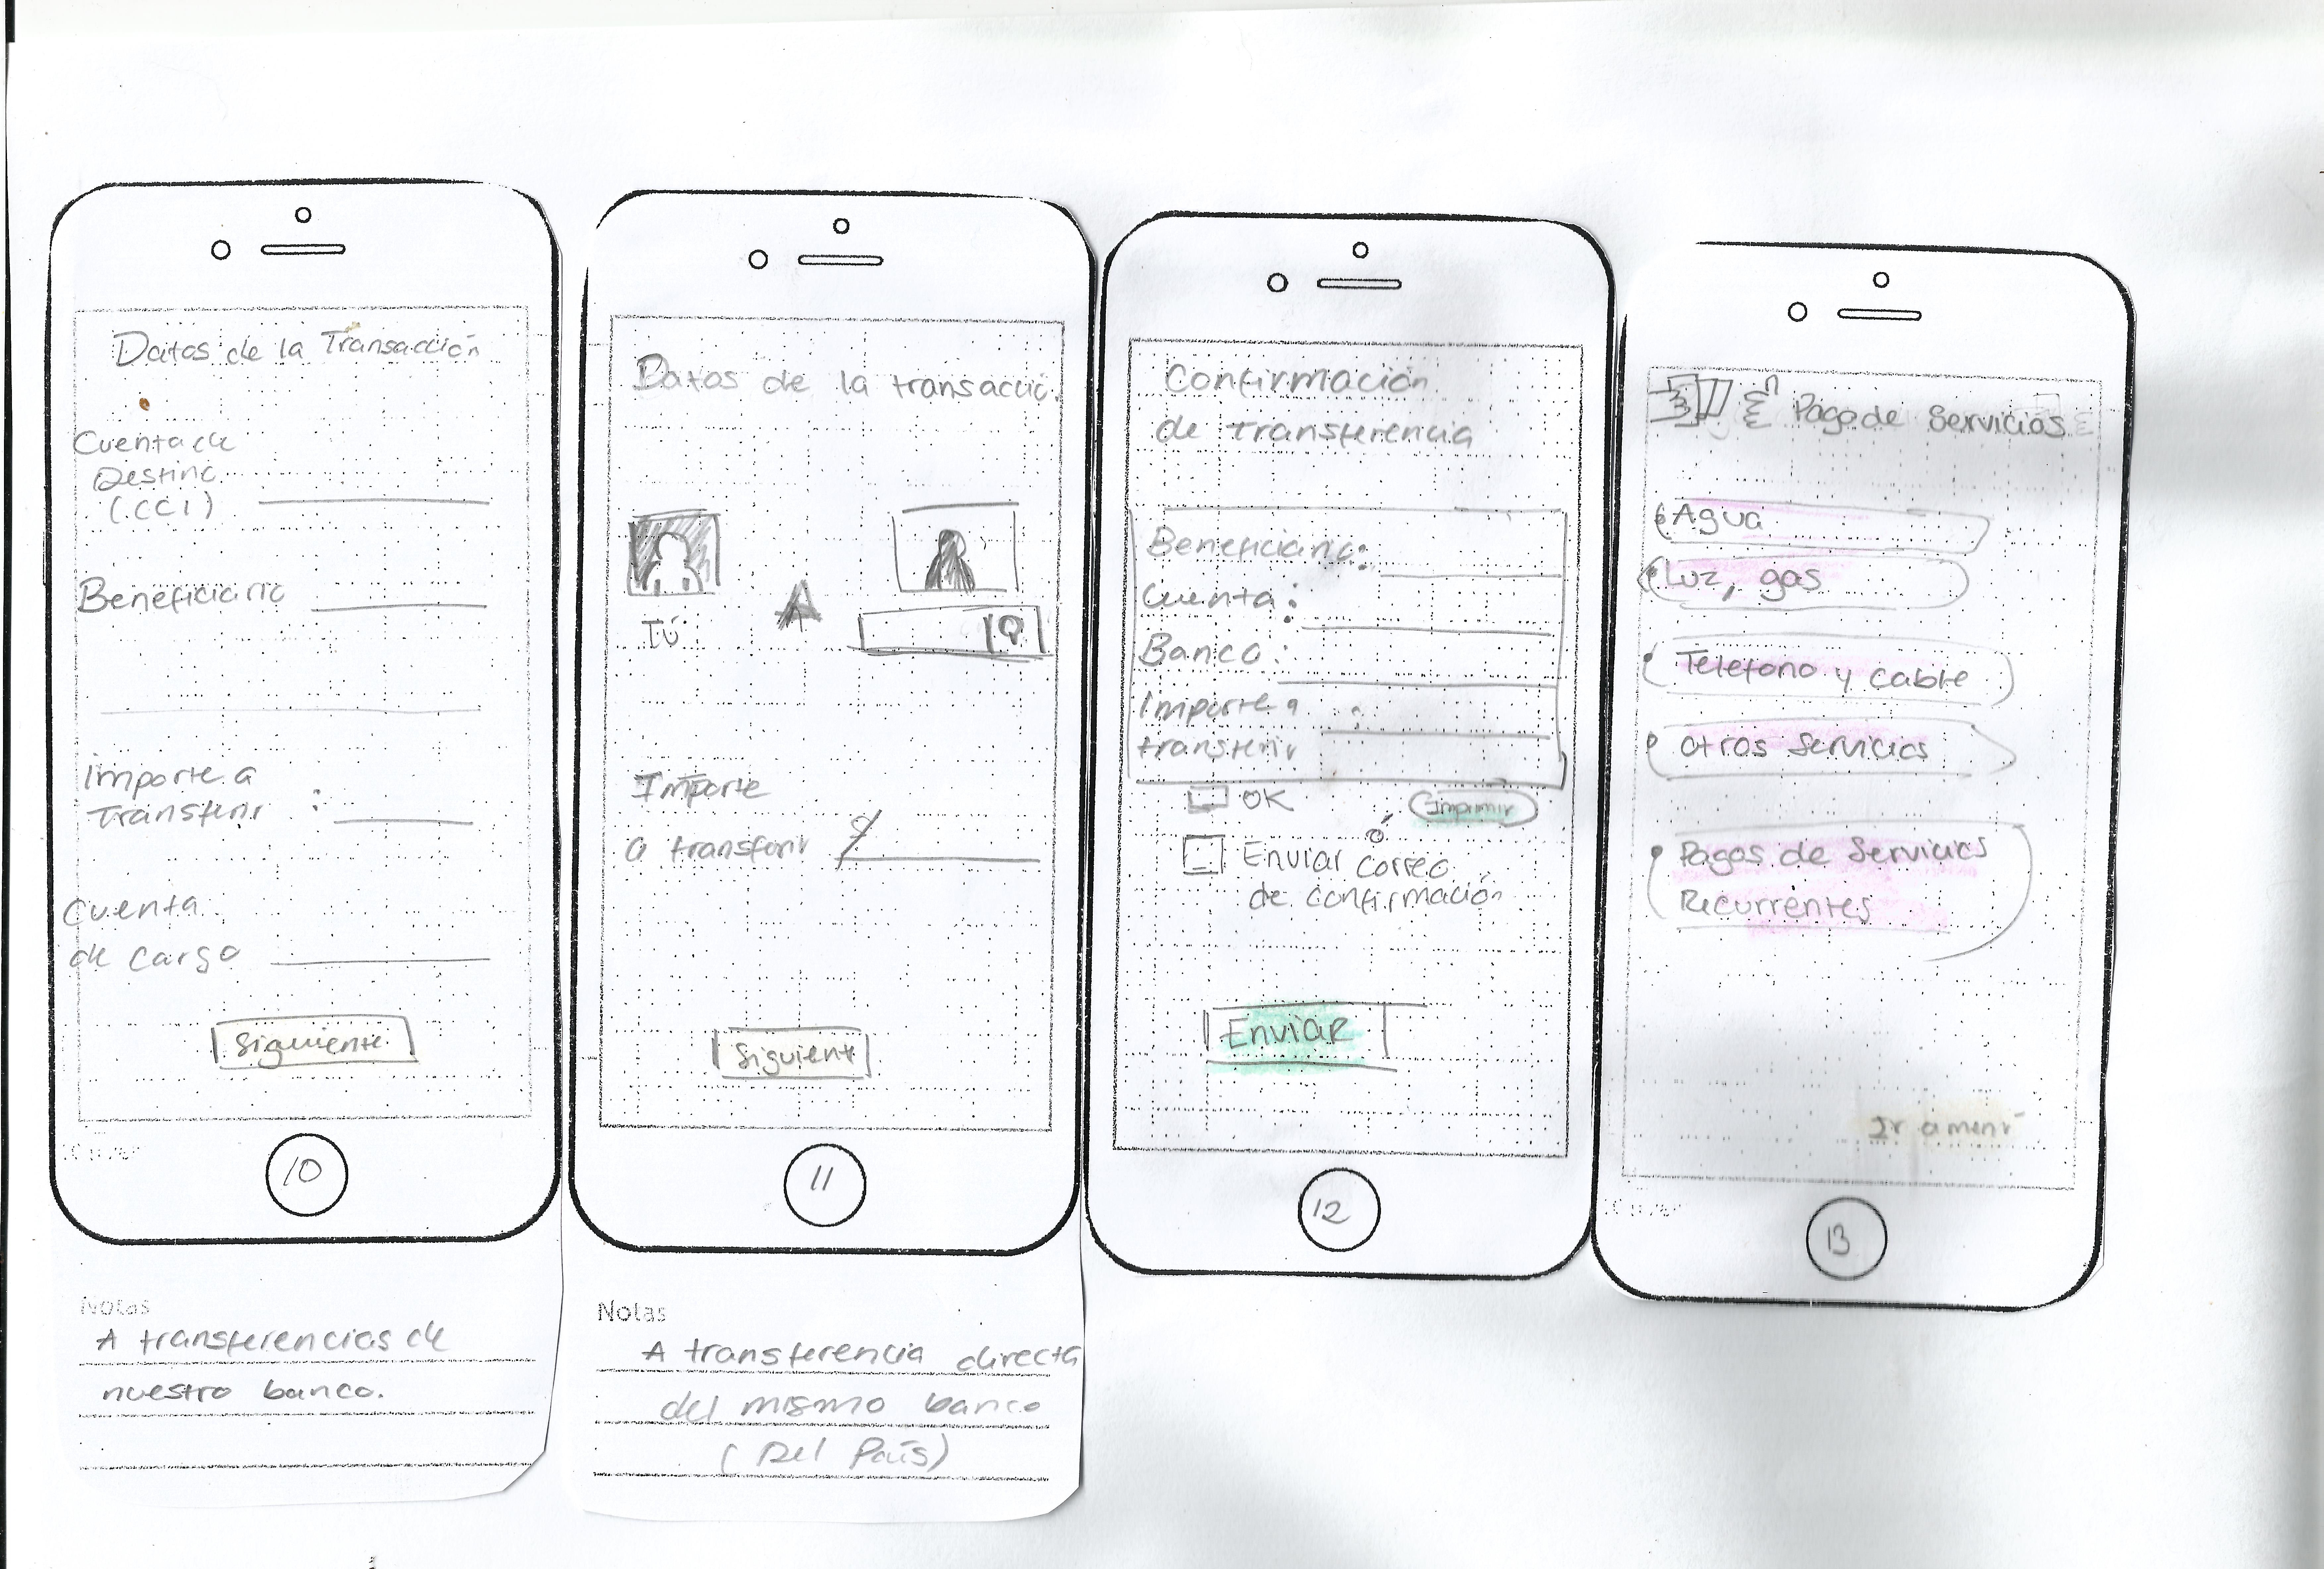 Datos de la Transacción
Cuenta de
Destino
(CCI)
Beneficiario
Importe a
Transferir :
Cuenta
de Cargo
Siguiente
10
Notas
A transferencias de
nuestro banco.
Datos de la transacció.
Tú
A
Importe
a transferir
Siguient
11
Notas
A transferencia directa
del mismo banco
(Del País)
Confirmación
de transferencia
Beneficiario:
Cuenta:
Banco:
Importe a :
transferir
OK
Imprimir
ó
Enviar correo
de confirmación
Enviar
12
Pago de Servicios
Agua
Luz, gas
Teléfono y cable
Otros Servicios
Pagos de Servicios
Recurrentes
Ir a menú
13